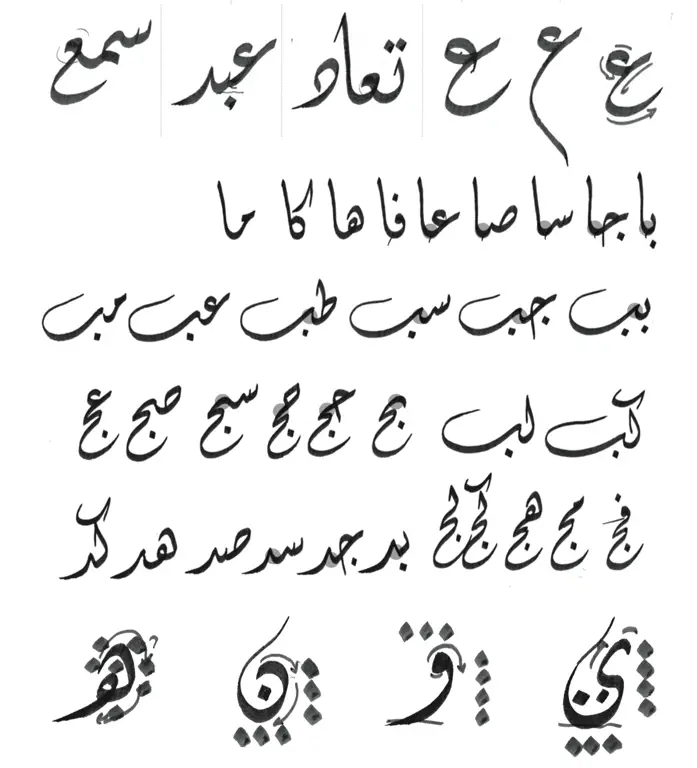 ع ع ع تعاد عبد سمع
با جا سا صا عا فا ها کا ما
بب جب سب طب عب مب
کب لب بج حج مج سج صج عج
فج مج هج کج لج بد جد سد صد هد کد
ی و ن هو